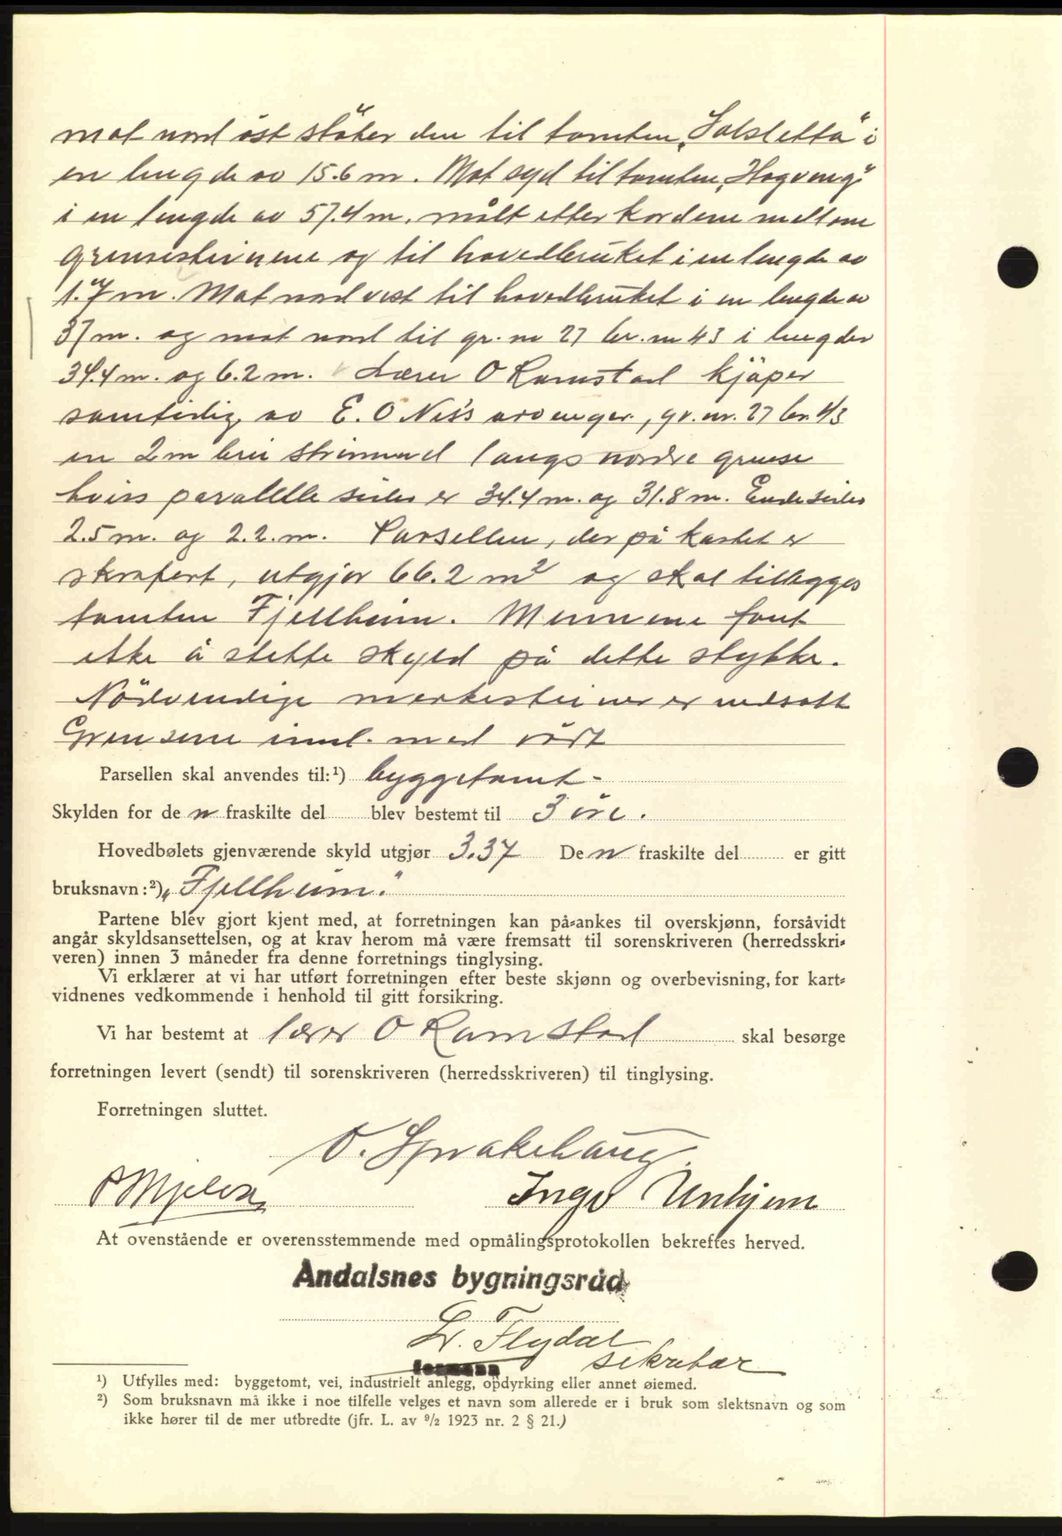 mot nord öst stöter den til tomten „Solsletta" i
en lengde av 15.6 m. Mot syd til tomten „Hogveng"
i en lengde av 57.4 m. målt etter kordene mellom
grensesteinene og til hovedbruket i en lengde av
1.7 m. Mot nordvest til hovedbruket i en lengde av
37 m. og mot nord til gr. nr 27 br. nr 43 i lengder
34.4 m. og 6.2 m. Lærer O Ramstad kjöper
samtidig av E. O Nes's arvenger, gr. nr. 27 br. 43
en 2 m brei strimmel langs nordre grense
hviss paralelle sider er 34.4 m. og 31.8 m. Endesider
2.5 m. og 2.2. m. Parsellen, der på kartet er
skrafert, utgjör 66.2 m² og skal tillegges
tomten Fjellheim. Mennene fant
ikke å sette skyld på dette stykke.
Nödvendige merkesteiner er nedsatt
Grensene innl. med rödt
Parsellen skal anvendes til:¹) byggetomt -
Skylden for den fraskilte del blev bestemt til 3 öre.
Hovedbølets gjenværende skyld utgjør 3.37 Den fraskilte del er gitt
bruksnavn:²) „Fjellheim."
Partene blev gjort kjent med, at forretningen kan på-ankes til overskjønn, forsåvidt
angår skyldsansettelsen, og at krav herom må være fremsatt til sorenskriveren (herredsskri-
veren) innen 3 måneder fra denne forretnings tinglysing.
Vi erklærer at vi har utført forretningen efter beste skjønn og overbevisning, for kart-
vidnenes vedkommende i henhold til gitt forsikring.
Vi har bestemt at lærer O Ramstad skal besørge
forretningen levert (sendt) til sorenskriveren (herredsskriveren) til tinglysing.
Forretningen sluttet.
O. Sprakehaug.
P Mjelva Ingv Unhjem
At ovenstående er overensstemmende med opmålingsprotokollen bekreftes herved.
Åndalsnes bygningsråd
L. Flydal
formann sekretær
¹) Utfylles med: byggetomt, vei, industrielt anlegg, opdyrking eller annet øiemed.
²) Som bruksnavn må ikke i noe tilfelle velges et navn som allerede er i bruk som slektsnavn og som
ikke hører til de mer utbredte (jfr. L. av ⁹/₂ 1923 nr. 2 § 21.)